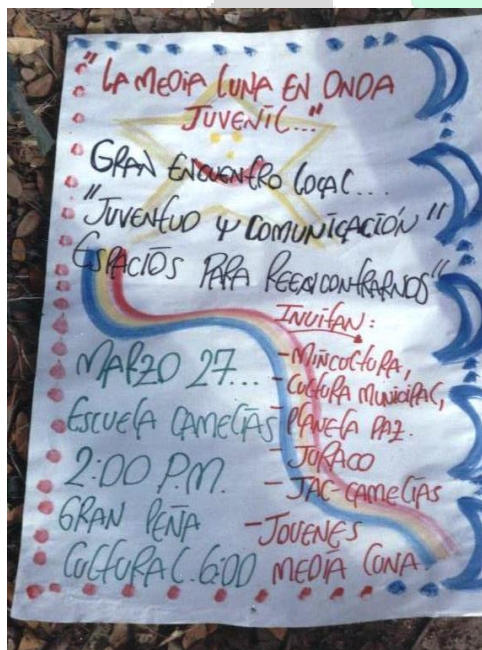 "LA MEDIA LUNA EN ONDA
JUVENIL..."
GRAN ENCUENTRO LOCAL....
"JUVENTUD Y COMUNICACIÓN"
ESPACIOS PARA REENCONTRARNOS"
MARZO 27...
ESCUELA CAMELIAS
2:00 P.M.
GRAN PEÑA
CULTURAL. 6:00
INVITAN:
- MINCULTURA,
- CULTURA MUNICIPAL,
- PLANETA PAZ.
- JURACO
- JAC-CAMELIAS
- JOVENES
MEDIA LUNA.